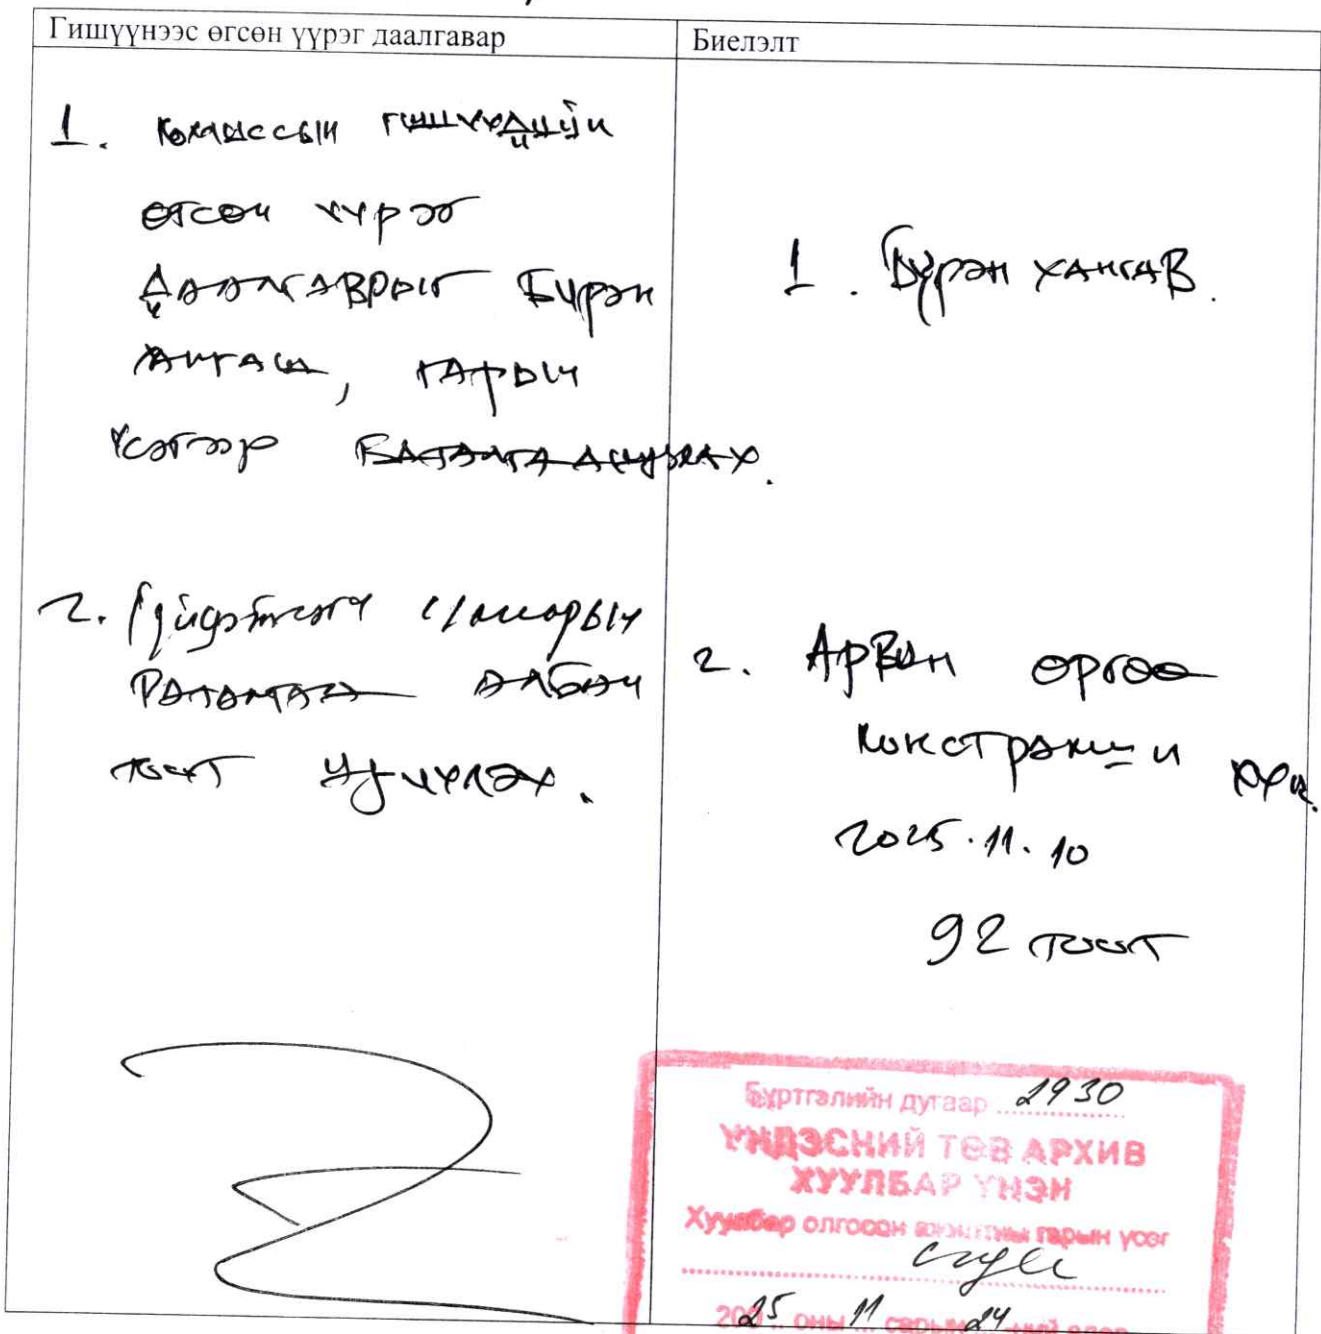 Гишүүнээс өгсөн үүрэг даалгавар
Биелэлт
1. Комиссын гишүүдийн
өгсөн үүрэг
Даалгаврыг Бүрэн
хангаж, гарын
үсгээр Баталгаажуулах.
2. Гүйцэтгэгч
албан
тоот
1. Бүрэн хангав.
2. Арван өргөө
констракшн ХХК.
2025.11.10
92 тоот
Бүртгэлийн дугаар 2930
ҮНДЭСНИЙ ТӨВ АРХИВ
ХУУЛБАР ҮНЭН
Хуулбар олгосон ажилтны гарын үсэг
2025 оны 11 сарын 24-ний өдөр